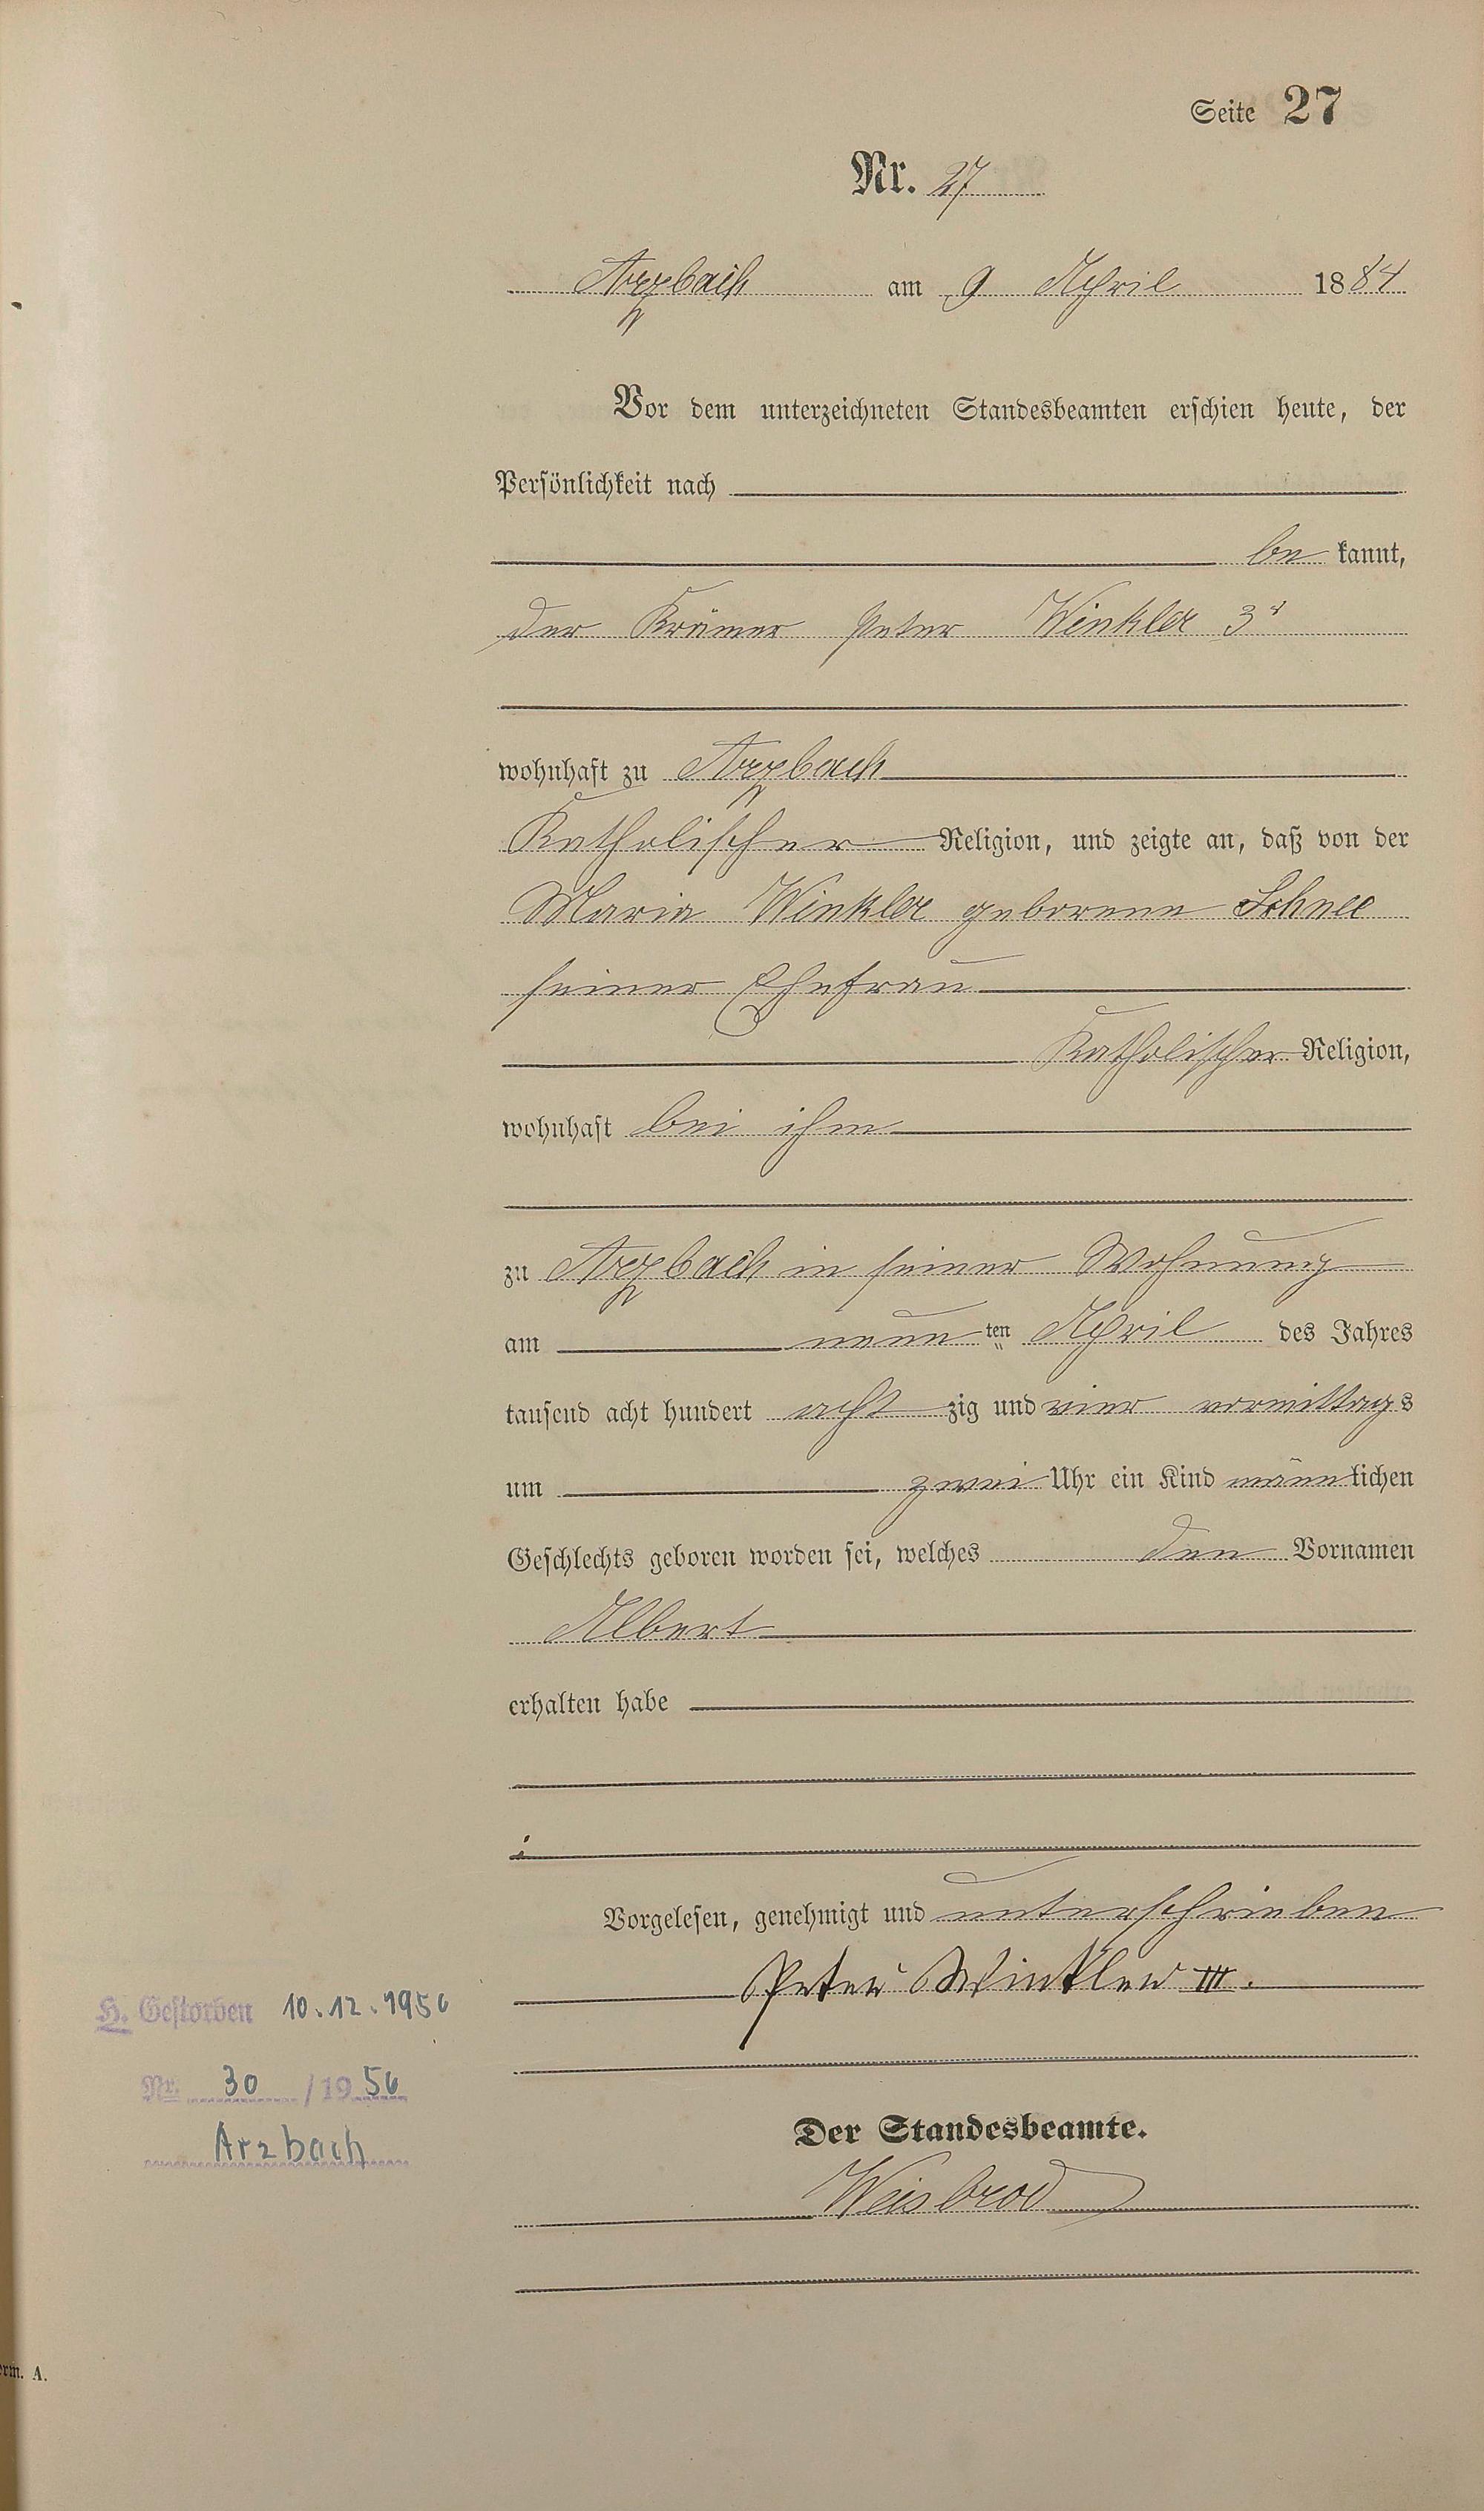 Seite 27
Nr. 27
Arzbach am 9 April 1884
Vor dem unterzeichneten Standesbeamten erschien heute, der
Persönlichkeit nach
be kannt,
der Krämer Peter Winkler 3r
wohnhaft zu Arzbach
Katholischer Religion, und zeigte an, daß von der
Maria Winkler geborene Schnee
seiner Ehefrau
Katholischer Religion,
wohnhaft bei ihm
zu Arzbach in seiner Wohnung
am neun ten April des Jahres
tausend acht hundert acht zig und vier vormittags
um zwei Uhr ein Kind männlichen
Geschlechts geboren worden sei, welches den Vornamen
Albert
erhalten habe
Vorgelesen, genehmigt und unterschrieben
Peter Winkler III.
H. Gestorben 10.12.1956
Nr. 30 /1956
Arzbach
Der Standesbeamte.
Weisbrod
orm. A.